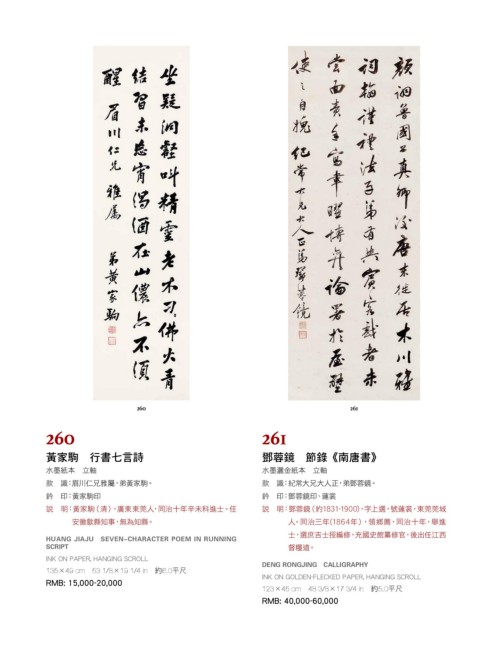 坐疑洞壑叫精靈老木刁刁佛火青
結習未忘濁酒在山儂亦不須
醒 眉川仁兄 雅屬 弟黃家駒
顏詡魯國公真卿後唐末徙居木川雅
詞翰謹禮法子弟有與賓客戲者未
嘗面責手寫韋曜博弈論署於屋壁
使之自愧 紀常大兄大人正 弟鄧蓉鏡
260
261
260
黃家駒 行書七言詩
水墨紙本 立軸
款 識：眉川仁兄雅屬，弟黃家駒。
鈐 印：黃家駒印
說 明：黃家駒（清），廣東東莞人，同治十年辛未科進士。任
安徽歙縣知事，無為知縣。
HUANG JIAJU SEVEN-CHARACTER POEM IN RUNNING
SCRIPT
INK ON PAPER, HANGING SCROLL
135×49 cm 53 1/8×19 1/4 in 約6.0平尺
RMB: 15,000-20,000
261
鄧蓉鏡 節錄《南唐書》
水墨灑金紙本 立軸
款 識：紀常大兄大人正，弟鄧蓉鏡。
鈐 印：鄧蓉鏡印、蓮裳
說 明：鄧蓉鏡（約1831-1900），字上選，號蓮裳，東莞莞城
人。同治三年（1864年），領鄉薦，同治十年，舉進
士，選庶吉士授編修，充國史館纂修官，後出任江西
督糧道。
DENG RONGJING CALLIGRAPHY
INK ON GOLDEN-FLECKED PAPER, HANGING SCROLL
123×45 cm 48 3/8×17 3/4 in 約5.0平尺
RMB: 40,000-60,000